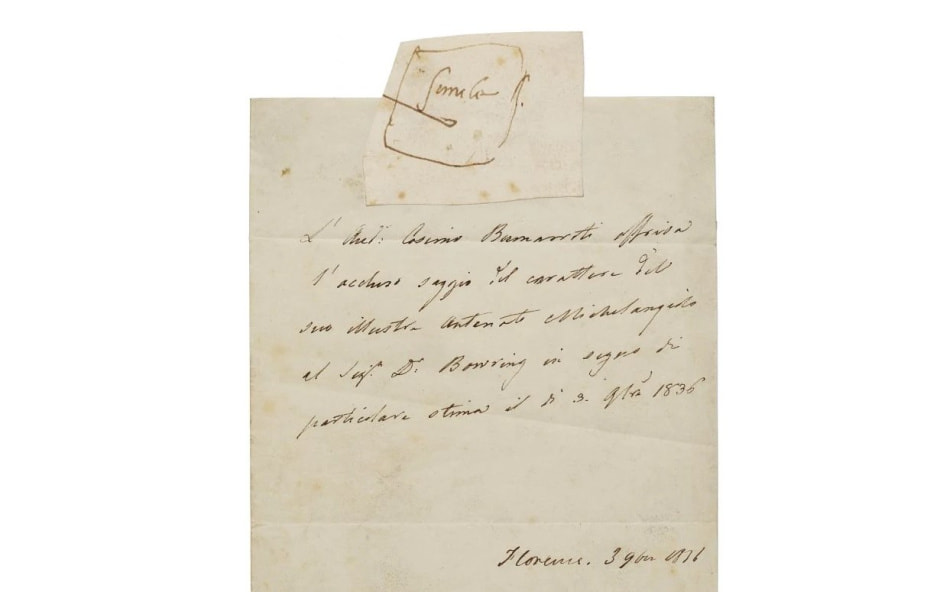 Simile
L' Aud: Cosimo Buonarroti offriva
l' accluso saggio del carattere del
suo illustre Antenato Michelangiolo
al Sigr. Dr. Bowring in segno di
particolare stima il dì 3. 9bre 1836
Florence. 3 9bre 1836